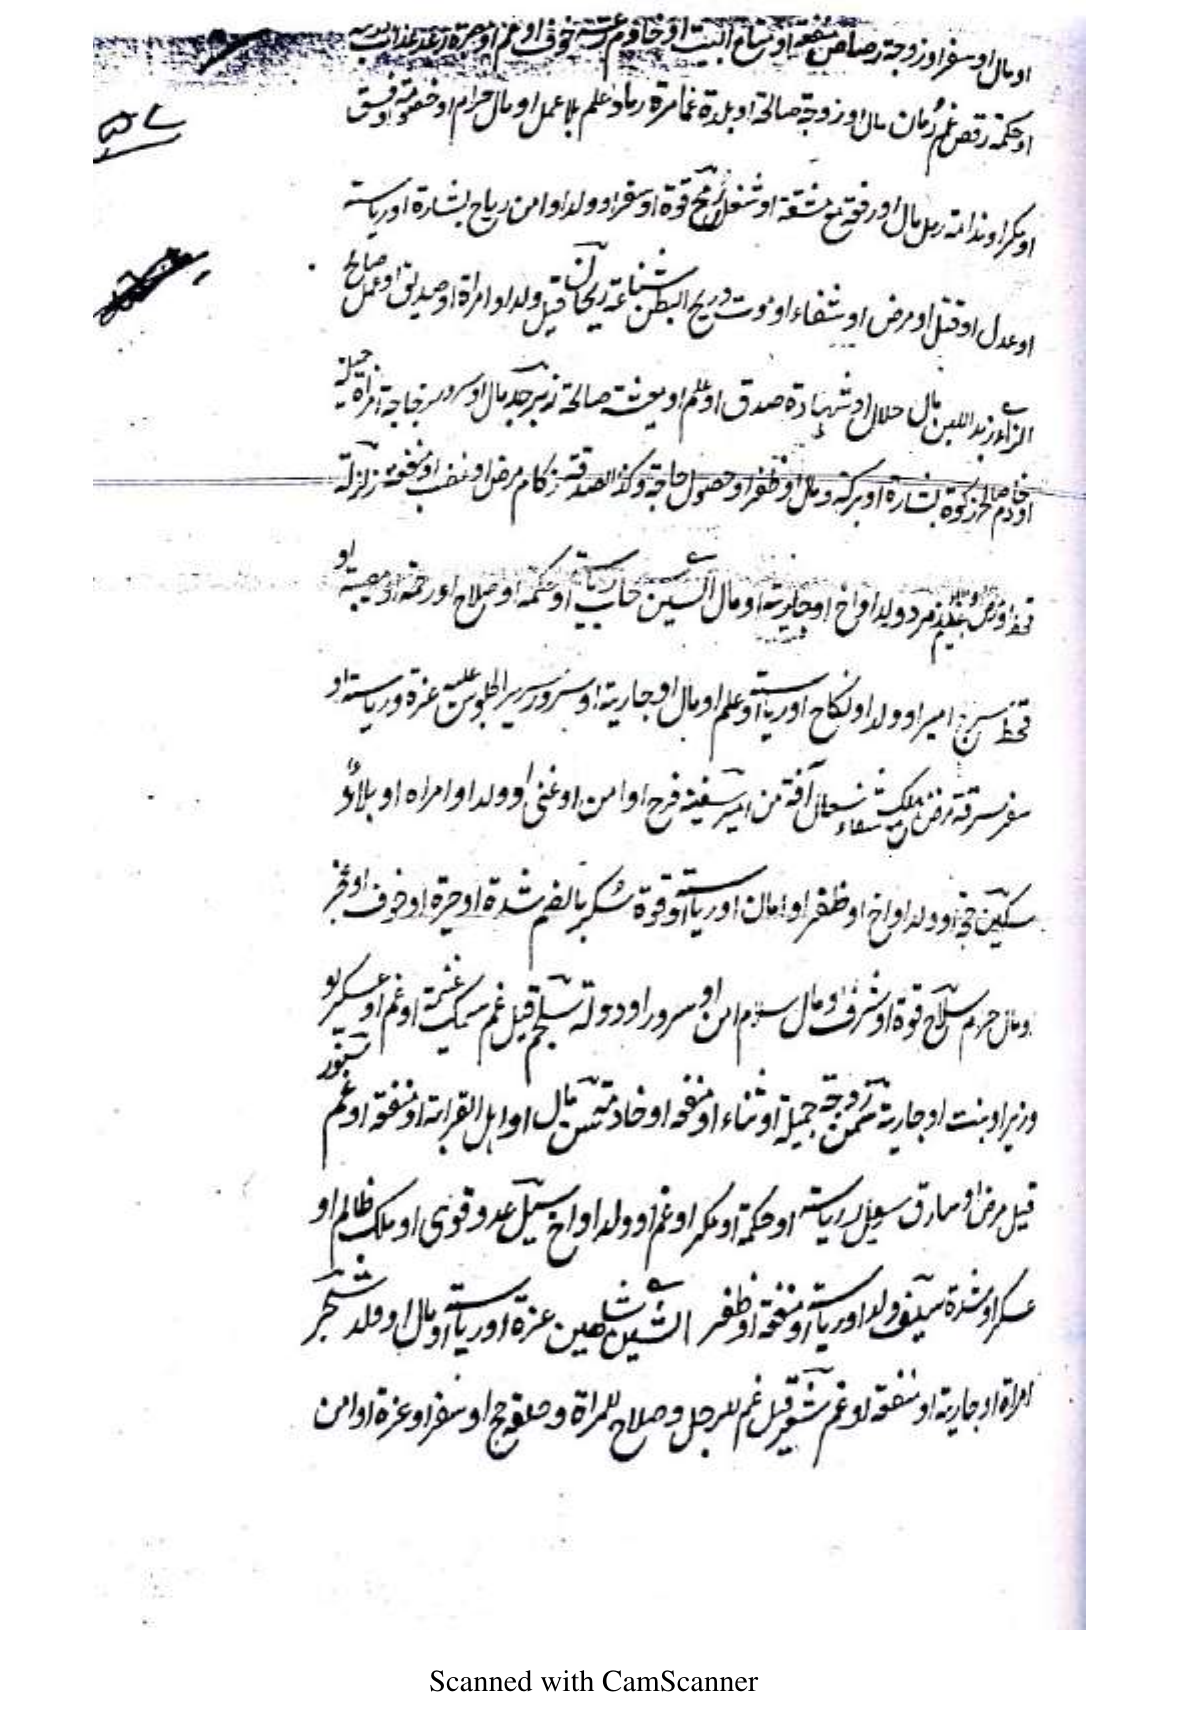 او مال او سفر او زوجة رصاص منفعة او متاع البيت او خادم خوف او غم او
او حكمة رقص غم رمان مال او زوجة صالحة او بلدة عامرة رماد علم بلا عمل او مال حرام او خصومة او فسق
او مكر او ندامة رمل مال او رفعة مع مشقة او شغل رمح قوة او سفر او ولد او امن رياح بشارة او رياسة
او عدل او قتل او مرض او شفاء او موت وريح البطن شناعة ريحان قيل ولد او امراة او صديق او عمل صالح
الزاء زبد اللبن مال حلال او شهادة صدق او علم او معيشة صالحة زبرجد مال او سرور زجاجة امراة جميلة
او خادم صالح زكوة بشارة او بركة و مال او ظفر او حصول حاجة وكذا الصدقة زكام مرض او غضب او منفعة زلزلة
قحط او مرض زمرد ولد او اخ او جارية او مال السين سحاب رياسة او حكمة او صلاح او رحمة او مصيبة او
قحط امير او ولد او نكاح او رياسة او علم او مال او جارية او سرور سرير الجلوس عليه عزة و رياسة او
سفر سرقة مرض آفة من امير سفينة فرح او امن او غنى او ولد او امراه او بلاء
سكين حج او ولد او اخ او ظفر او امان او رياسة او قوة سكر بالضم شدة او حيرة او خوف او فجر
او مال حرام سلاح قوة او شرف او مال سلام امن او سرور او دولة سلجم قيل غم سمك غنيمة او غم او عسكر او
وزير او بنت او جارية سمن زوجة جميلة او ثناء او منفعة او خادمة سن مال او اهل القرابة او منفعة او غم سنور
قيل مرض او سارق رياسة او حكمة او مكر او غم او ولد او اخ سيل عدو قوى او ملك ظالم او
عسكر او شدة سيف ولد او رياسة او منفعة او ظفر الشين شاهين عزة او رياسة او مال او ولد شجر
امراة او جارية او منفعة او غم شعر قيل غم للرجل و صلاح للمراة و حلقه حج او سفر او عزة او امن
Scanned with CamScanner